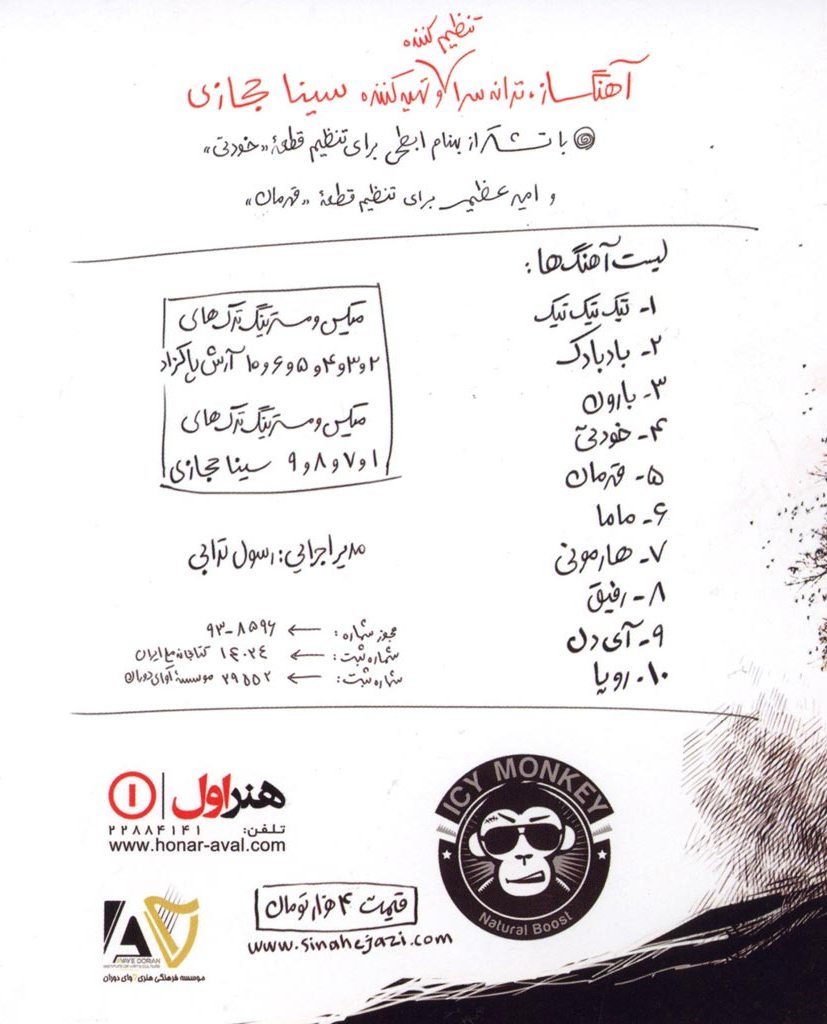 تنظیم کننده
آهنگساز، ترانه سرا و تهیه کننده سینا حجازی
با تشکر از بهنام ابطحی برای تنظیم قطعهٔ «خودتی»
و امیر عظیمی برای تنظیم قطعهٔ «قهرمان»
لیست آهنگ ها:
۱- تیک تیک تیک
۲- بادبادک
۳- بارون
۴- خودتی
۵- قهرمان
۶- ماما
۷- هارمونی
۸- رفیق
۹- آی دل
۱۰- رویا
میکس و مسترینگ ترک های
۲و۳و۴و۵و۶و۱۰ آرش پاکزاد
میکس و مسترینگ ترک های
۱و۷و۸و۹ سینا حجازی
مدیر اجرایی: رسول ترابی
مجوز شماره: ← ۹۳-۸۵۹۶
شماره ثبت: ← ۱۴۰۲۴ کتابخانه ملی ایران
شماره ثبت: ← ۲۹۵۵۲ موسسهٔ آوای دوران
هنر اول ۱
تلفن: ۲۲۸۸۴۱۴۱
www.honar-aval.com
ICY MONKEY
Natural Boost
قیمت ۴ هزار تومان
www.sinahejazi.com
AVAYE DORAN
INSTITUTE OF ART & CULTURE
موسسه فرهنگی هنری آوای دوران